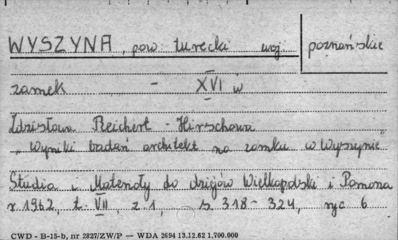 WYSZYNA, pow. turecki woj. poznańskie
zamek - XVI w
Zdzisława Reichert - Hirschowa
"Wyniki badań architekt na zamku w Wyszynie"
Studia i Materiały do dziejów Wielkopolski i Pomorza
r. 1962, t. VII, z 1, s. 318-324, ryc 6
CWD - B-15-b, nr 2827/ZW/P — WDA 2694 13.12.62 1.700.000